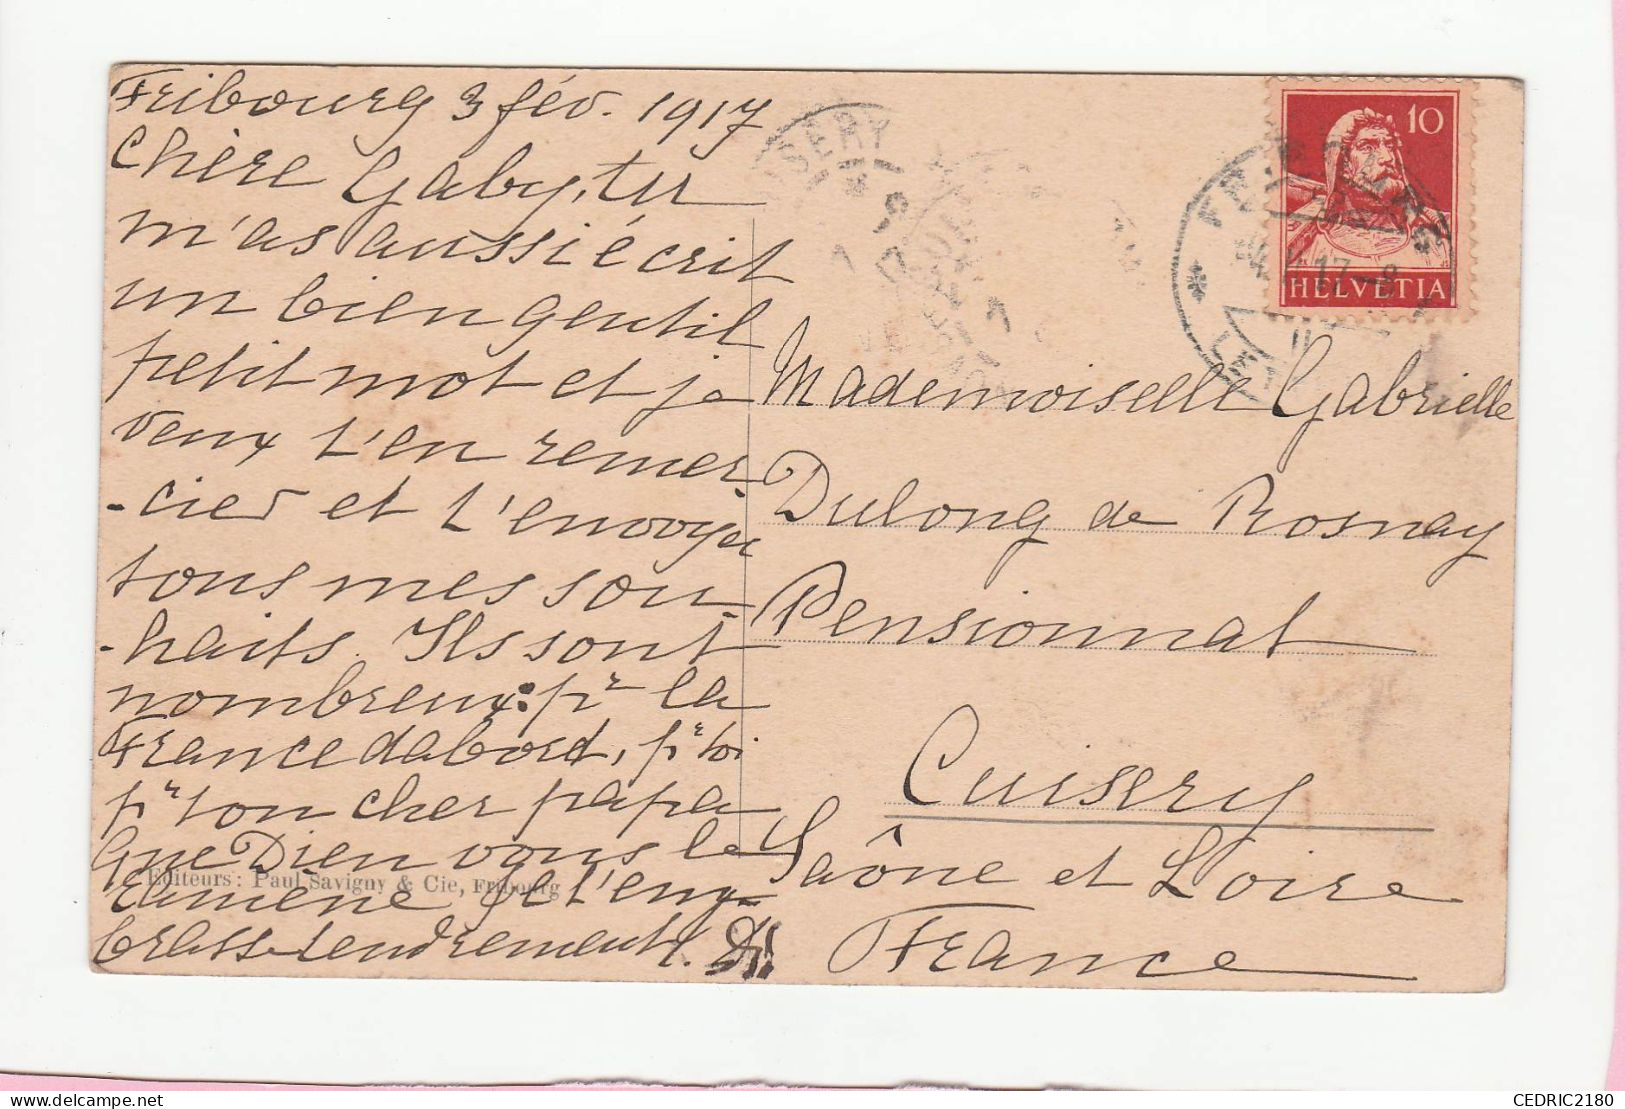 Fribourg 3 fév. 1917
Chère Gaby, tu
m'as aussi écrit
un bien gentil
petit mot et je
veux t'en remer
-cier et t'envoyer
tous mes sou
-haits. Ils sont
nombreux: pr la
France dabord, pr toi
pr ton cher papa
Que Dieu vous le
ramène. Je t'em-
brasse tendrement.
Editeurs: Paul Savigny & Cie, Fribourg
10
HELVETIA
FRIBOURG
17-8
CUISERY
Mademoiselle Gabrielle
Dulong de Rosnay
Pensionnat
Cuisery
Saône et Loire
France
CEDRIC2180